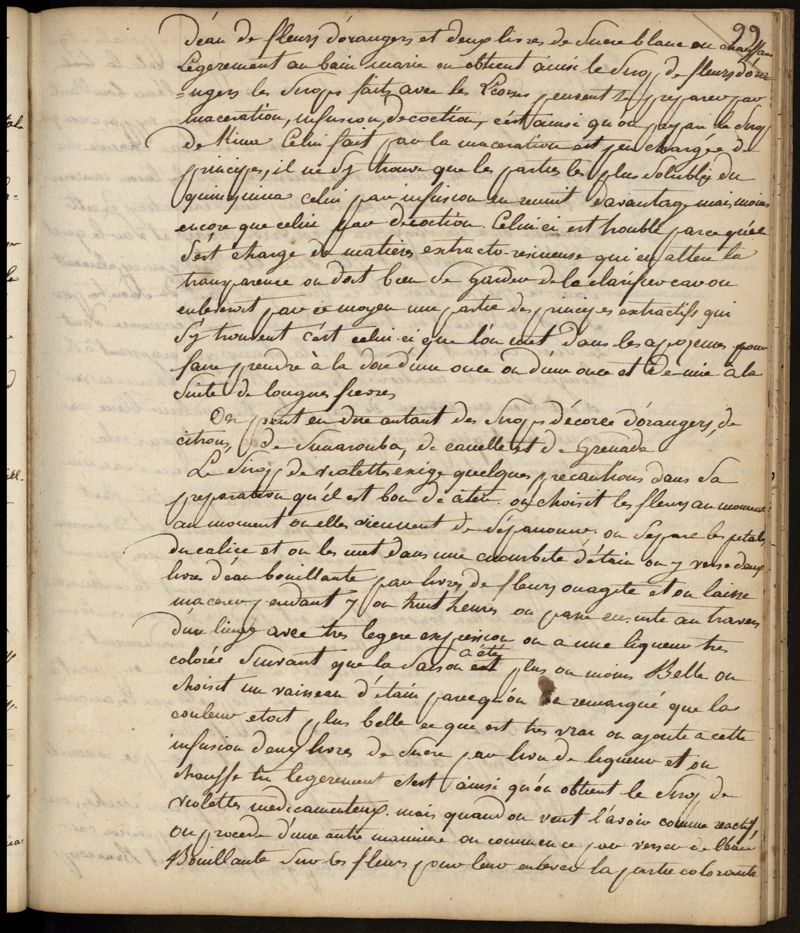 99
d'éau de fleurs d'orangers et deux livres de Sucre blanc on chauffant
Legerement au bain marie on obtient ainsi le Sirop de fleurs d'ora
-ngers les Sirops faits avec les Ecorses peuvent se preparer par
maceration, infusion, decoction, c'est ainsi qu'on prepare le Sirop
de Kina Celui fait par la maceration est peu chargée de
principes, il ne s'y trouve que les parties les plus solubles du
quinquina celui par infusion en reunit davantage mais moins
encore que celui par decoction. Celui ci est trouble parce qu'il
s'est chargé de matieres extracto-resineuse qui en altere la
transparence on doit bien se Garder de la clarifier car on
enleverait par ce moyen une partie des principes extractifs qui
s'y trouvent c'est celui-ci que l'on met dans les apozemes pour
faire prendre à la dose d'une once ou d'une once et de-mie à la
Suite de longues fievres
On peut en dire autant des Sirops d'écorce d'orangers, de
citrons, de Simarouba, de canelle et de Grenade
Le Sirop de violettes exige quelques precautions dans Sa
preparation qu'il est bon de citer. on choisit les fleurs au moment
au moment ou elles viennent de s'épanouir, on Separe les petales
du calice et on les met dans une cucurbite d'étain on y verse deux
livres d'éau bouillante par livres de fleurs on agite et on laisse
macerer pendant 7 ou huit heures on passe ensuite au travers
d'un linge avec tres legere expression on a une liqueur tres
colorée Suivant que la Saison a été plus ou moins Belle on
choisit un vaisseau d'étain parcequ'on a remarqué que la
couleur etoit plus belle ce que est tres vrai on ajoute a cette
infusion deux livres de Sucre par livre de liqueur et on
chauffe tres legerement c'est ainsi qu'on obtient le Sirop de
violettes medicamenteux. mais quand on veut l'avoir comme reactif,
on procede d'une autre manniere on commence par verser de l'éau
Bouillante Sur les fleurs pour leur enlever la partie colorante